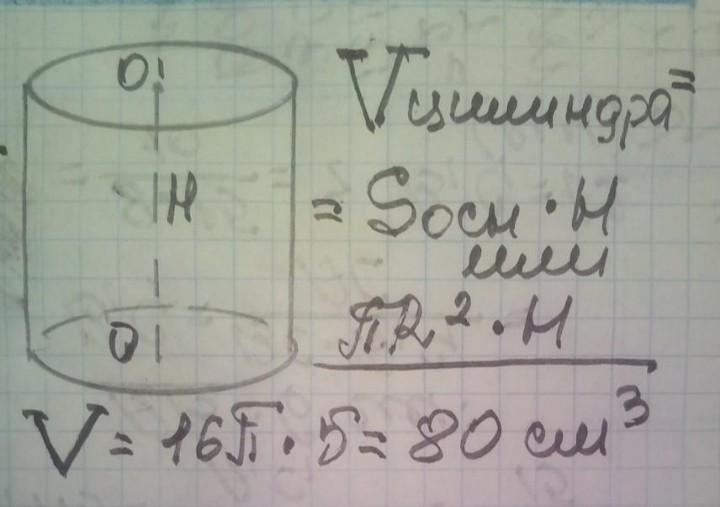 O₁
H
O
V цилиндра =
= Sосн · H
или
πR² · H
V = 16π · 5 = 80 см³